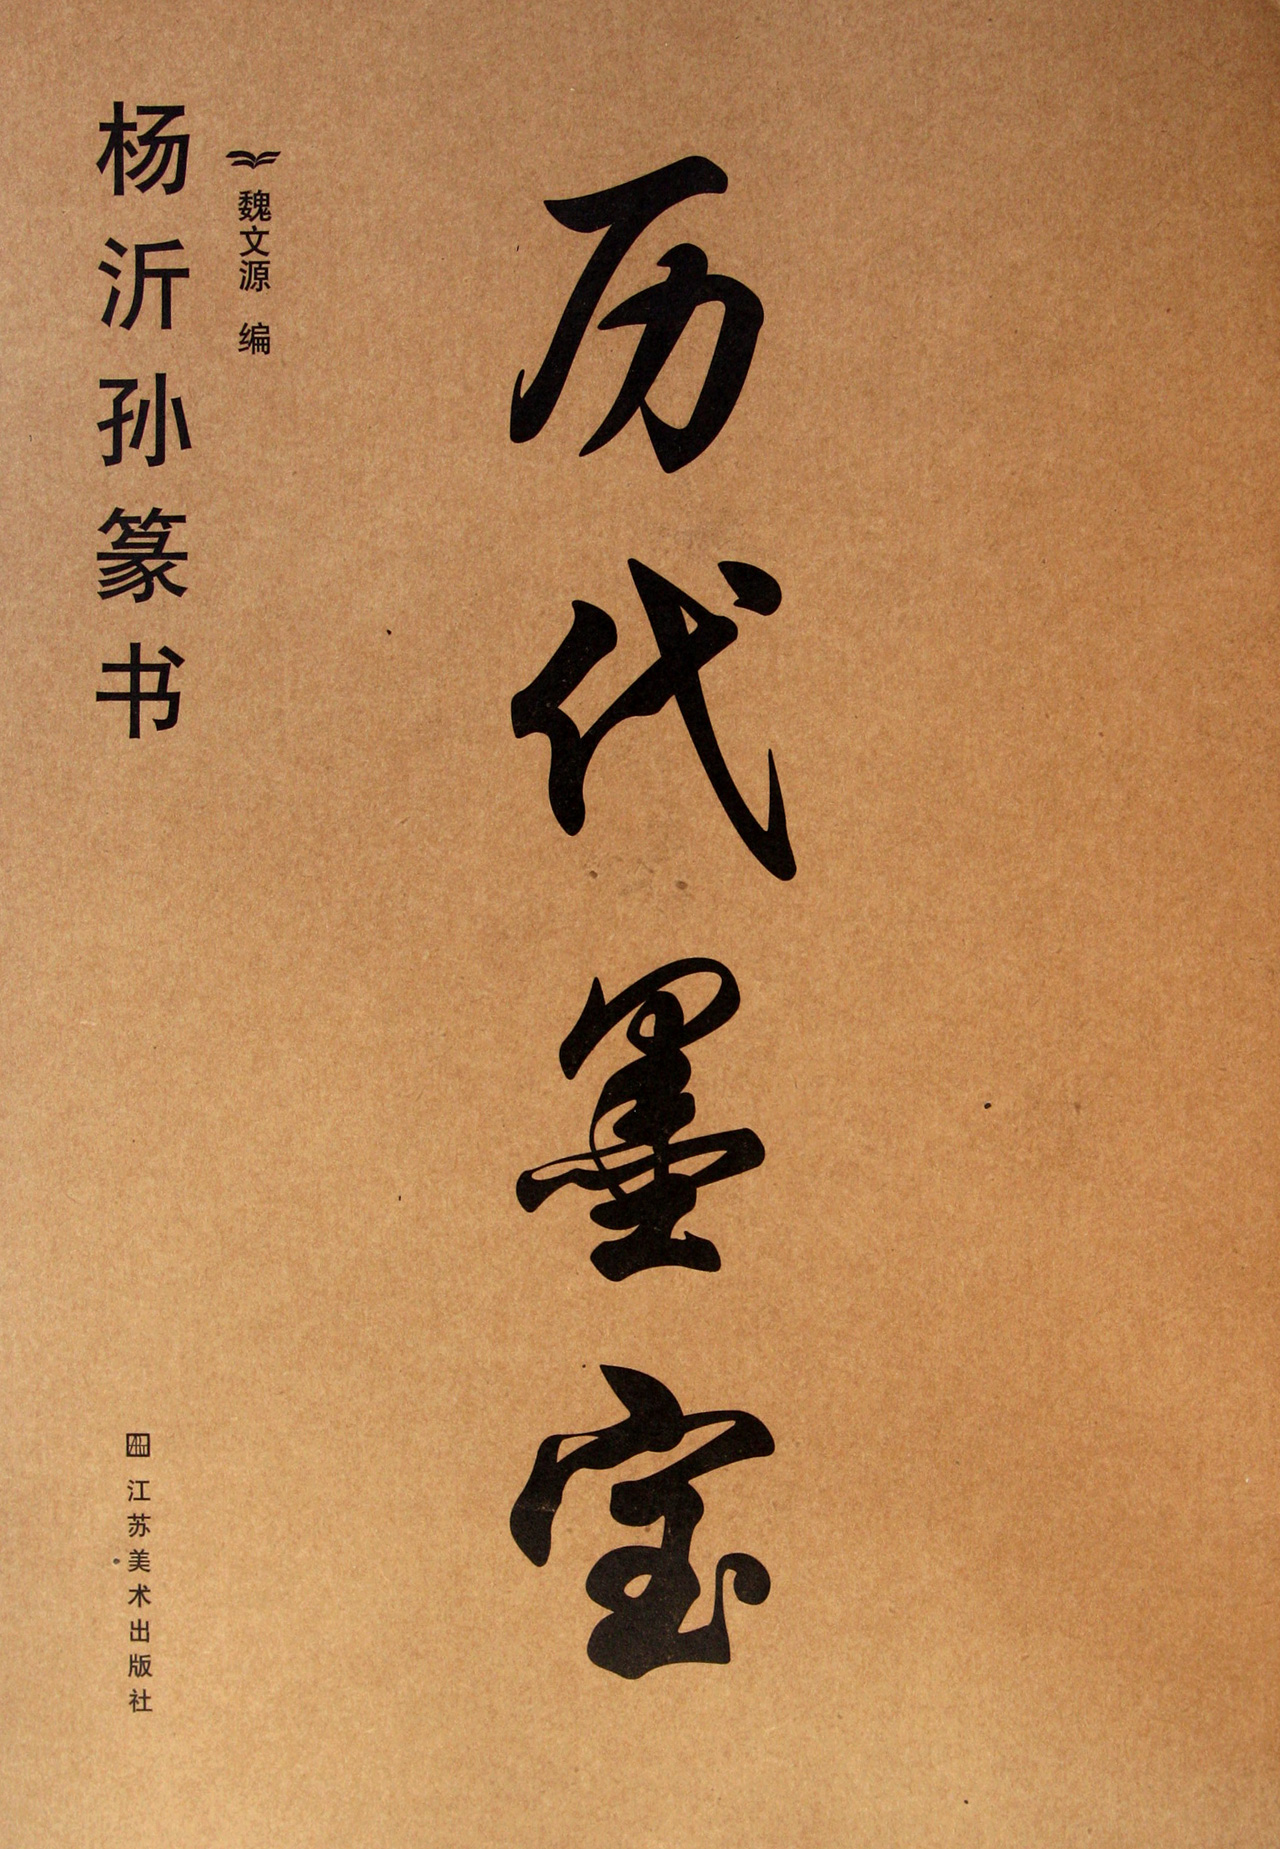 历代墨宝
魏文源 编
杨沂孙篆书
江苏美术出版社